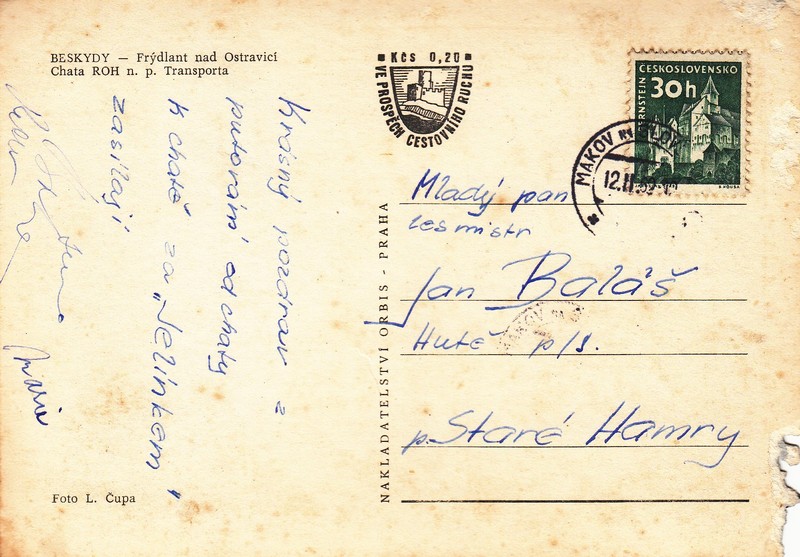 BESKYDY — Frýdlant nad Ostravicí
Chata ROH n. p. Transporta
Krásný pozdrav z
putování od chaty
k chatě za „Jelínkem"
zasílají
Marie
Foto L. Čupa
NAKLADATELSTVÍ ORBIS - PRAHA
Kčs 0,20
VE PROSPĚCH CESTOVNÍHO RUCHU
ČESKOSLOVENSKO
30h
MAKOV
Mladý pan
lesmistr
Jan Baláš
Hutě p/s.
p. Staré Hamry